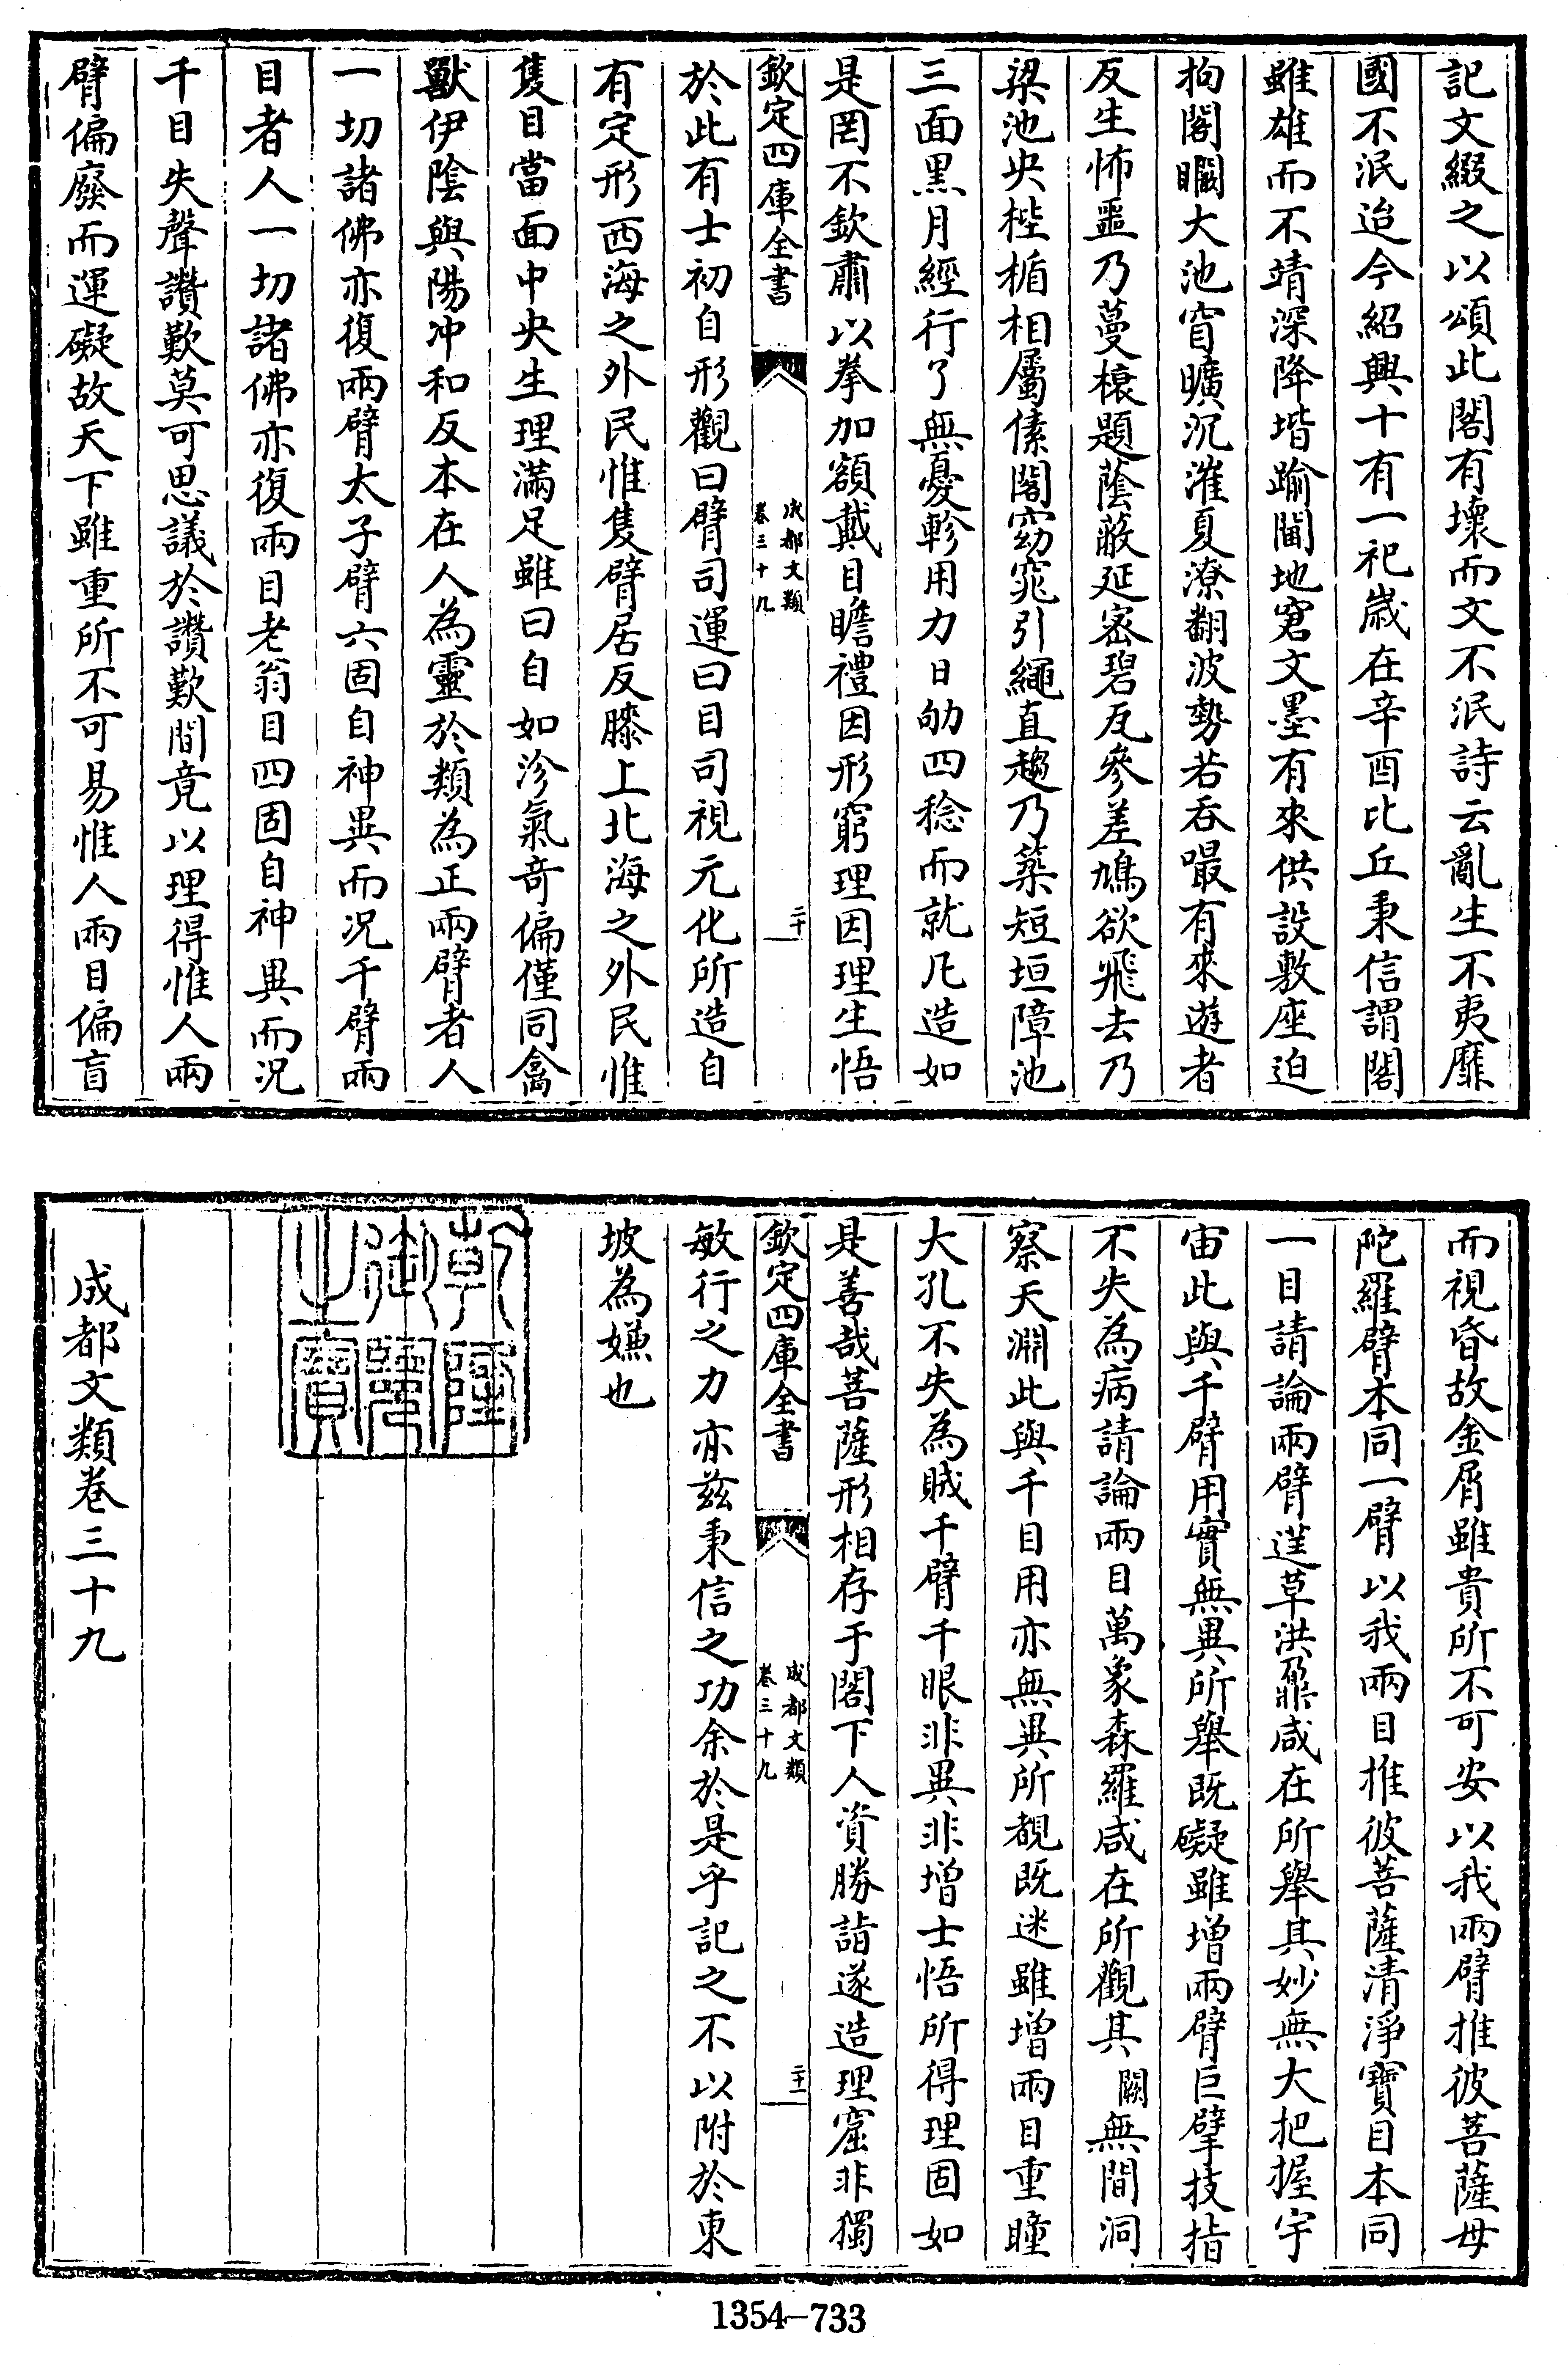 記文綴之以頌此閣有壞而文不泯詩云亂生不夷靡
國不泯迨今紹興十有一祀嵗在辛酉比丘秉信謂閣
雖雄而不靖深降堦踰閫地窘文墨有來供設敷座迫
拘閣瞯大池窅曠沉漼夏潦翻波勢若吞嘬有來遊者
反生怖噩乃蔓榱題蔭蔽延宻碧瓦參差鳩欲飛去乃
梁池央梐楯相屬傃閣窈窕引繩直趨乃築短垣障池
三面黒月經行了無憂軫用力日劬四稔而就凡造如
是罔不欽肅以拳加額戴目瞻禮因形窮理因理生悟
欽定四庫全書
成都文類
卷三十九
二十
於此有士初自形觀曰臂司運曰目司視元化所造自
有定形西海之外民惟隻臂居反膝上北海之外民惟
隻目當面中央生理滿足雖曰自如沴氣奇偏僅同禽
獸伊陰與陽冲和反本在人為靈於類為正兩臂者人
一切諸佛亦復兩臂太子臂六固自神異而况千臂兩
目者人一切諸佛亦復兩目老翁目四固自神異而况
千目失聲讚歎莫可思議於讚歎間竟以理得惟人兩
臂偏廢而運礙故天下雖重所不可易惟人兩目偏盲
而視昏故金屑雖貴所不可安以我兩臂推彼菩薩母
陀羅臂本同一臂以我兩目推彼菩薩清淨寶目本同
一目請論兩臂莛草洪鼐咸在所舉其妙無大把握宇
宙此與千臂用實無異所舉既礙雖增兩臂巨擘技指
不失為病請論兩目萬象森羅咸在所觀其闕無間洞
察天淵此與千目用亦無異所覩既迷雖增兩目重瞳
大孔不失為賊千臂千眼非異非增士悟所得理固如
是善哉菩薩形相存于閣下人資勝詣遂造理窟非獨
欽定四庫全書
成都文類
卷三十九
二十一
敏行之力亦兹秉信之功余於是乎記之不以附於東
坡為嫌也
乾隆
御覽
之寶
成都文類卷三十九
1354-733